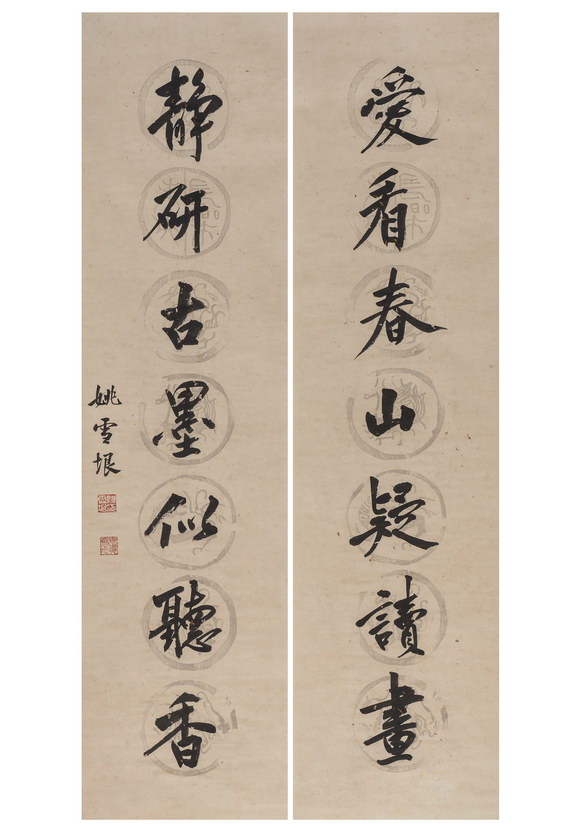 愛看春山疑讀畫
靜研古墨似聽香
姚雪垠